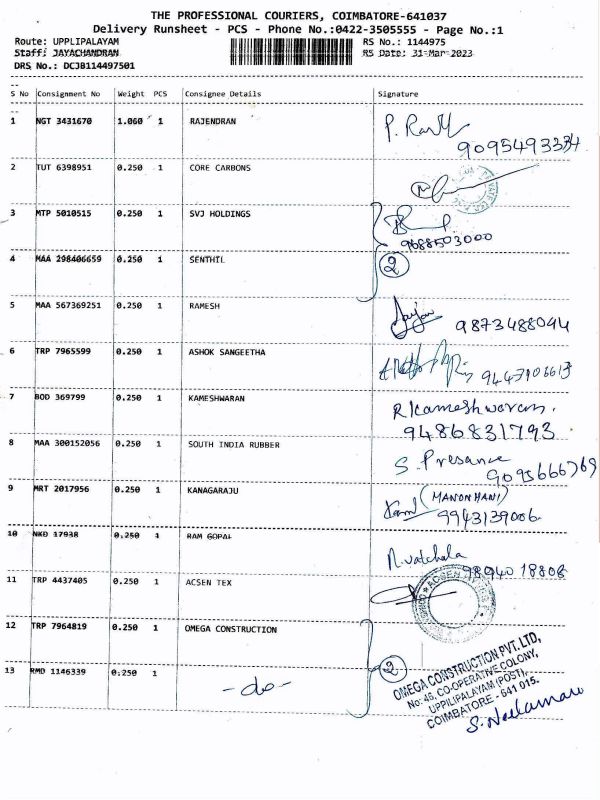 THE PROFESSIONAL COURIERS, COIMBATORE-641037
Delivery Runsheet - PCS - Phone No.:0422-3505555 - Page No.:1
Route: UPPLIPALAYAM RS No.: 1144975
Staff: JAYACHANDRAN RS Date: 31-Mar-2023
DRS No.: DCJB114497501
S No Consignment No Weight PCS Consignee Details Signature
1 NGT 3431670 1.060 1 RAJENDRAN
9095493334
2 TUT 6398951 0.250 1 CORE CARBONS
3 MTP 5010515 0.250 1 SVJ HOLDINGS
9688503000
4 MAA 298406659 0.250 1 SENTHIL 2
5 MAA 567369251 0.250 1 RAMESH
9873488044
6 TRP 7965599 0.250 1 ASHOK SANGEETHA
7 BOD 369799 0.250 1 KAMESHWARAN R Kameshwaran.
9486831793
8 MAA 300152056 0.250 1 SOUTH INDIA RUBBER S. Presanna
9 MRT 2017956 0.250 1 KANAGARAJU (MANONMANI)
9943139006
10 NKD 17938 0.250 1 RAM GOPAL
N. Vatchala
98940 18808
11 TRP 4437405 0.250 1 ACSEN TEX
12 TRP 7964819 0.250 1 OMEGA CONSTRUCTION
13 RMD 1146339 0.250 1 -do- 2
OMEGA CONSTRUCTION PVT. LTD,
No: 46, CO-OPERATIVE COLONY,
UPPILIPALAYAM (POST),
COIMBATORE - 641 015.